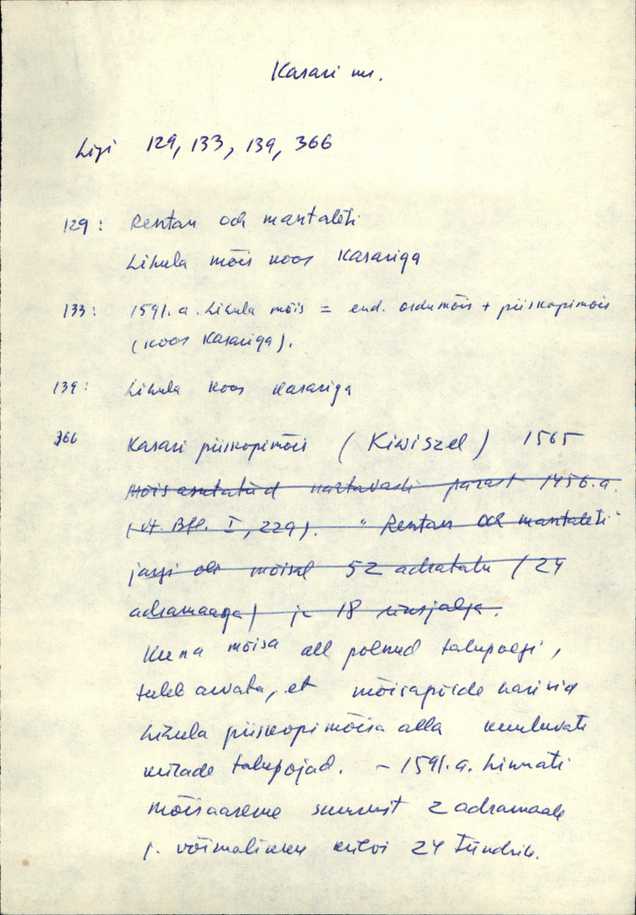 Kasari mõis.
Ligi 129, 133, 139, 366
129: Rentan och mantaleti
Lihula mõis koos Kasariga
133: 1591.a. Lihula mõis = end. ordumõis + piiskopimõis
(koos Kasariga).
139: Lihula koos Kasariga
366 Kasari piiskopimõis (Kiwiszel) 1565
Mõis asutatud nähtavasti pärast 1456.a.
(vt. Bfl. I, 229). "Rentan och mantaleti"
järgi oli mõisal 52 adratalu (24
adramaaga) ja 18 üksjalga.
Kuna mõisa all polnud talupoegi,
tuleb arvata, et mõisapõlde harisid
Lihula piiskopimõisa alla kuuluvate
külade talupojad. – 1591.a. hinnati
mõisaaseme suurust 2 adramaale
j. võimalikku külvi 24 tündrile.